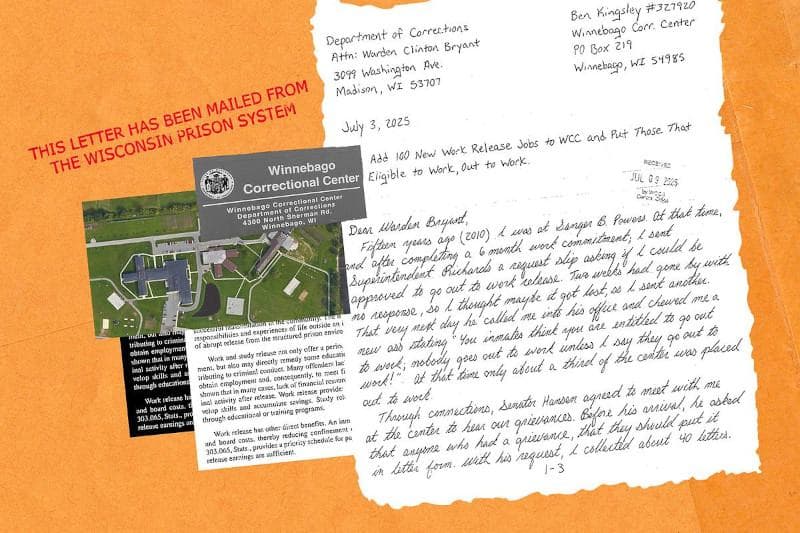 THIS LETTER HAS BEEN MAILED FROM
THE WISCONSIN PRISON SYSTEM
Winnebago
Correctional Center
Winnebago Correctional Center
Department of Corrections
4300 North Sherman Rd.
Winnebago, WI
responsibilities and experiences of life outside an
of abrupt release from the structured prison enviro
Work and study release not only offer a perio
ment, but also may directly remedy some educatio
tributing to criminal conduct. Many offenders lac
obtain employment and, consequently, to meet fi
shown that in many cases, lack of financial resour
inal activity after release. Work release provides
velop skills and accumulate savings. Study rel
through educational or training programs.
Work release has other direct benefits. An inm
and board costs, thereby reducing confinement
303.065, Stats., provides a priority schedule for pa
release earnings are sufficient.
tributing to criminal
obtain employment
shown that in many
inal activity after
velop skills and a
through educationa
Work release
and board costs, t
303.065, Stats.,
release earnings are
Department of Corrections
Attn: Warden Clinton Bryant
3099 Washington Ave.
Madison, WI 53707
Ben Kingsley #327920
Winnebago Corr. Center
PO Box 219
Winnebago, WI 54985
July 3, 2025
Add 100 New Work Release Jobs to WCC and Put Those That
Eligible to Work, Out to Work.
RECEIVED
JUL 09 2025
Dear Warden Bryant,
Fifteen years ago (2010) I was at Sanger B. Powers. At that time,
and after completing a 6 month work commitment, I sent
Superintendent Richards a request slip asking if I could be
approved to go out to work release. Two weeks had gone by with
no response, so I thought maybe it got lost, so I sent another.
That very next day he called me into his office and chewed me a
new ass stating "You inmates think you are entitled to go out
to work; nobody goes out to work unless I say they go out to
work!". At that time only about a third of the center was placed
out to work.
Through connections, Senator Hansen agreed to meet with me
at the center to hear our grievances. Before his arrival, he asked
that anyone who had a grievance, that they should put it
in letter form. With his request, I collected about 40 letters.
1-3